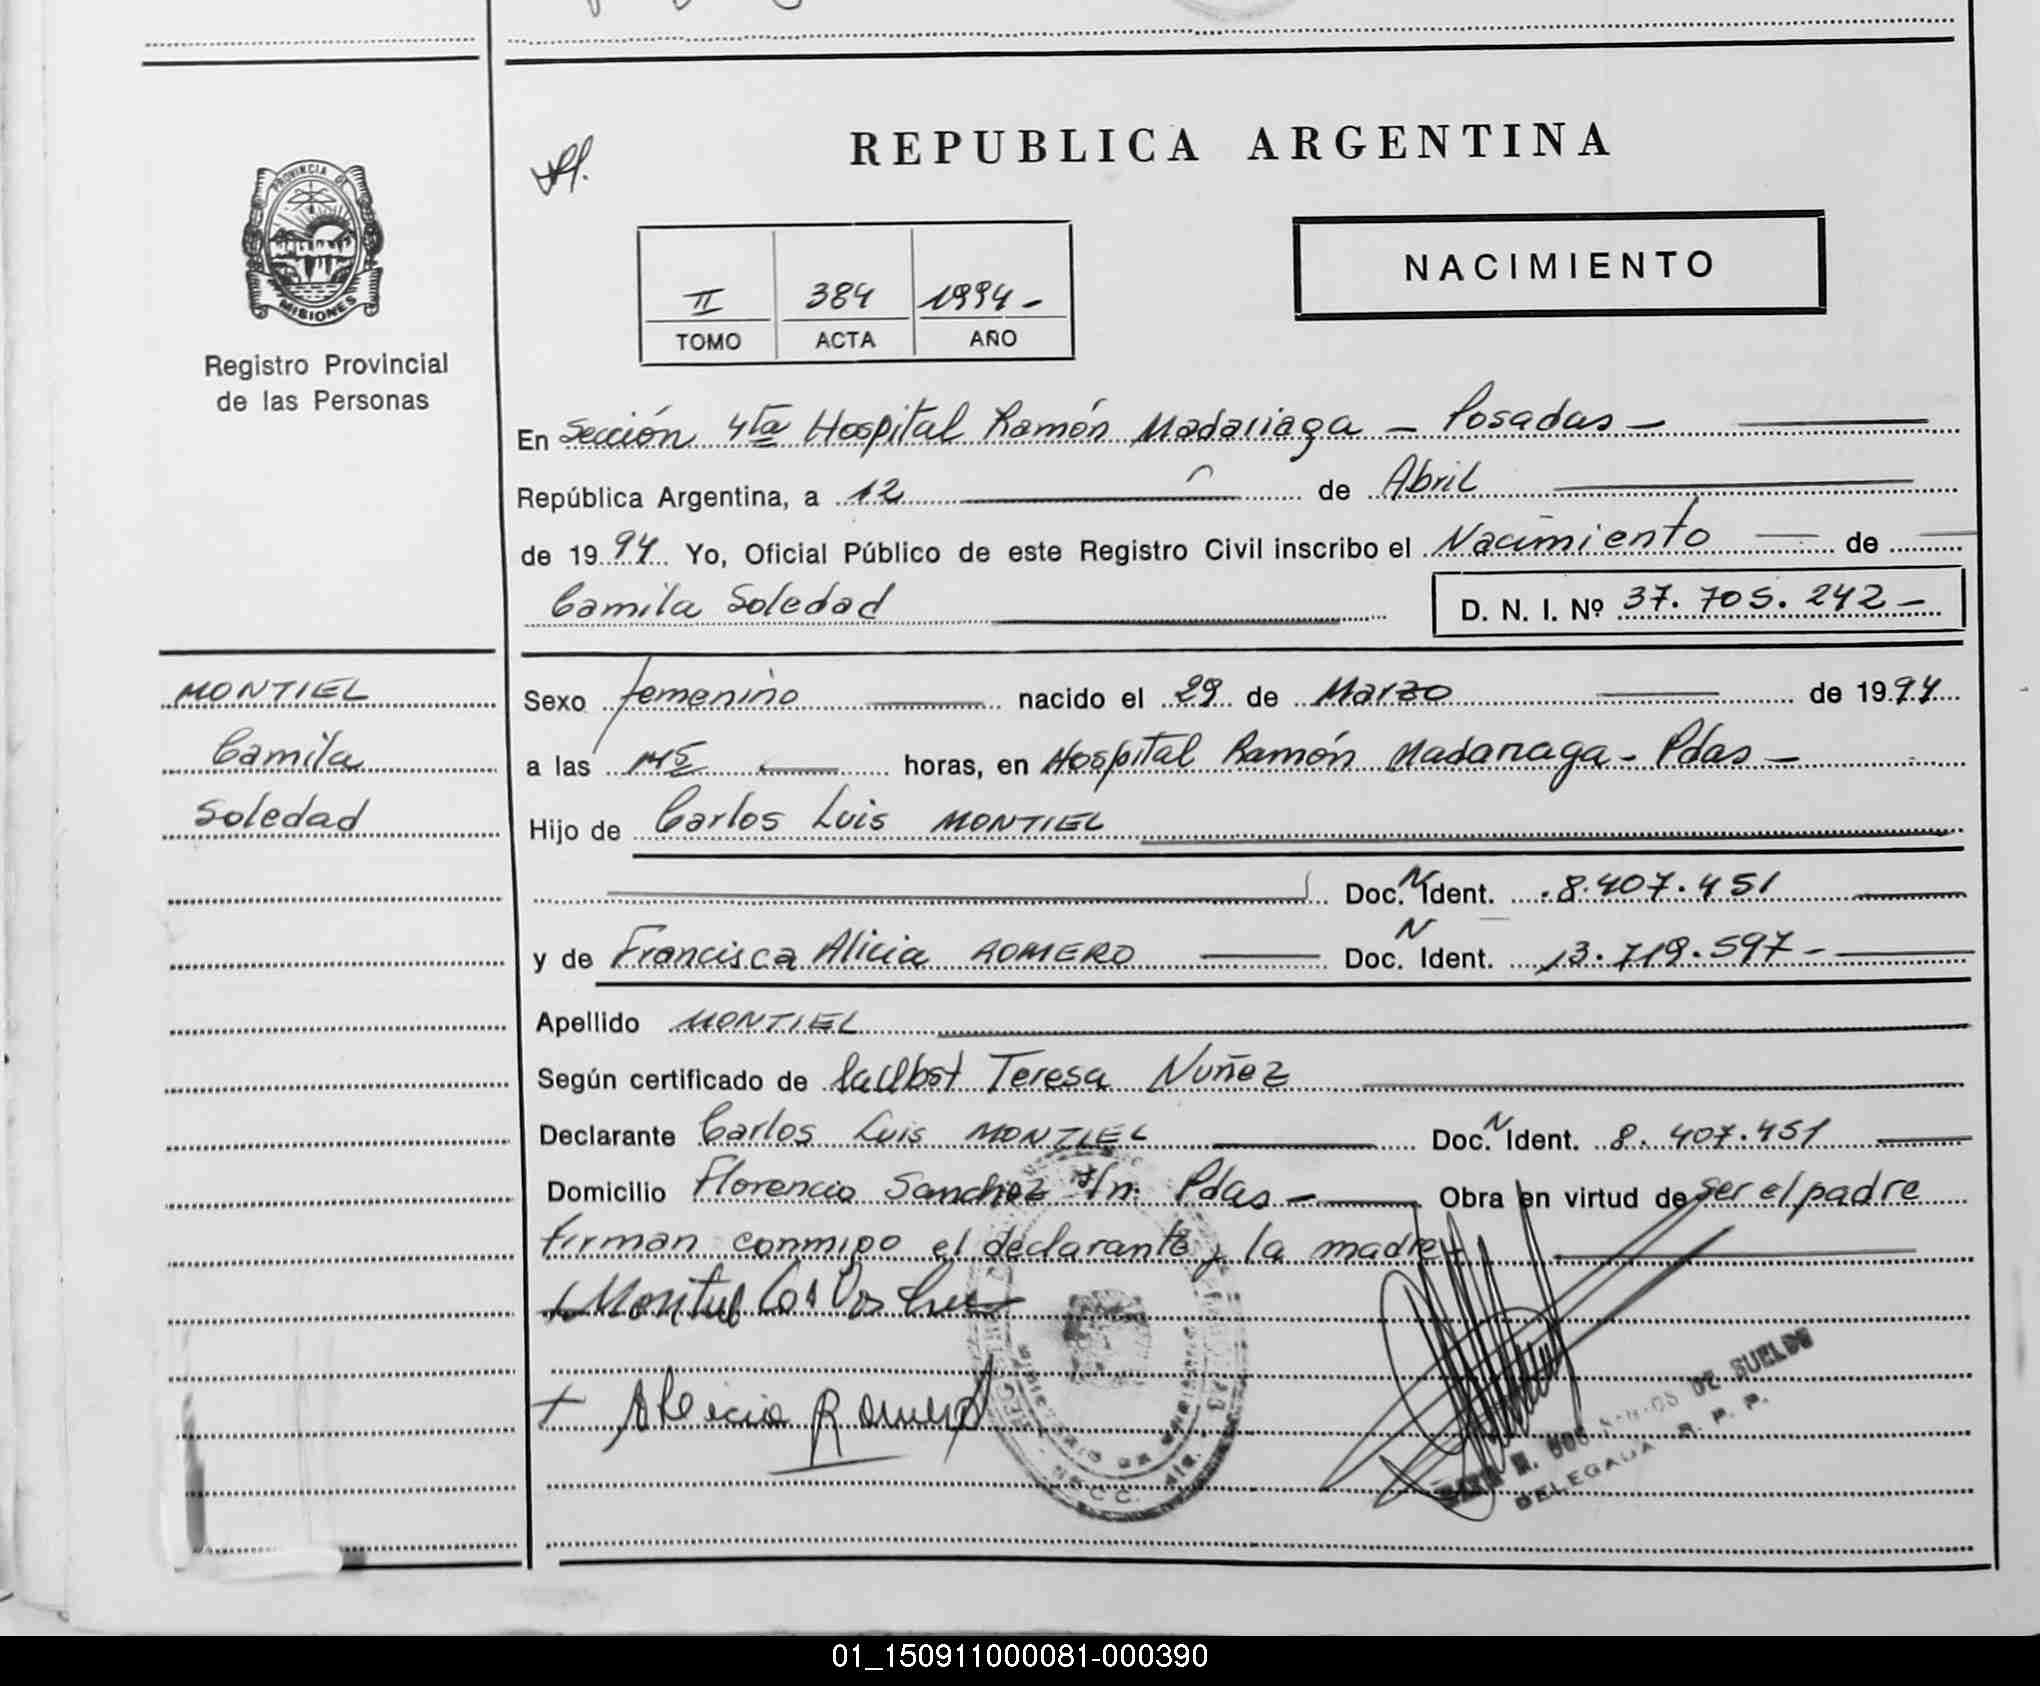 REPUBLICA ARGENTINA
PROVINCIA DE
MISIONES
Registro Provincial
de las Personas
II 384 1994-
TOMO ACTA AÑO
NACIMIENTO
En Sección 4ta Hospital Ramón Madariaga - Posadas -
República Argentina, a 12 de Abril
de 1994 Yo, Oficial Público de este Registro Civil inscribo el Nacimiento de
Camila Soledad D. N. I. Nº 37.705.242-
MONTIEL
Camila
Soledad
Sexo femenino nacido el 29 de Marzo de 1994
a las horas, en Hospital Ramón Madariaga - Pdas -
Hijo de Carlos Luis MONTIEL
Doc. N Ident. 8.407.451
y de Francisca Alicia ROMERO Doc. N Ident. 13.719.597-
Apellido MONTIEL
Según certificado de Teresa Nuñez
Declarante Carlos Luis MONTIEL Doc. N Ident. 8.407.451
Domicilio Florencio Sanchez s/n Pdas - Obra en virtud de ser el padre
firman conmigo el declarante y la madre
Montiel Carlos Luis
+ Alicia Romero
DE SUELDO
DELEGADA R. P. P.
01_150911000081-000390